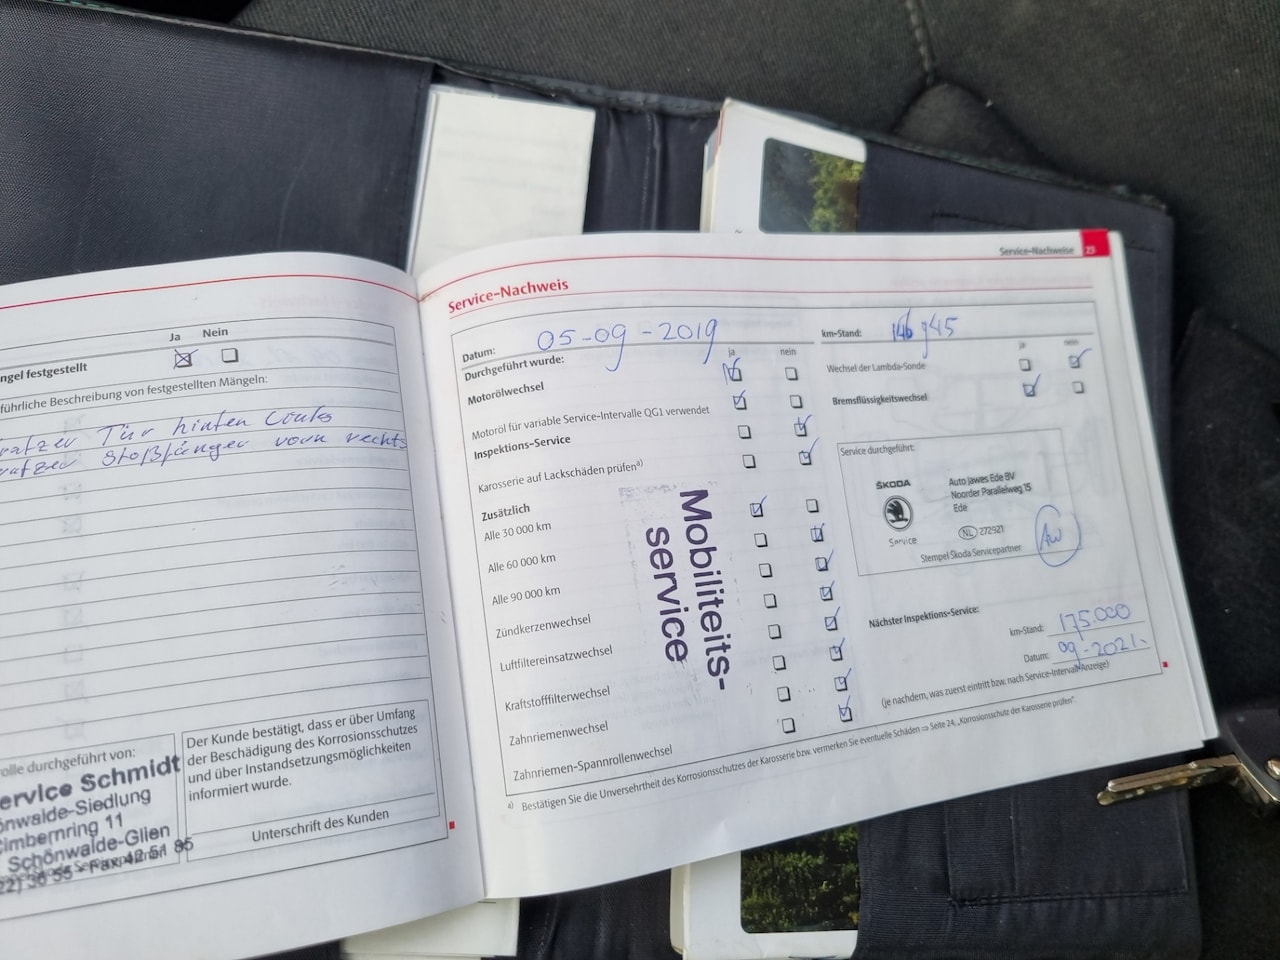 Ja
Nein
ngel festgestellt
führliche Beschreibung von festgestellten Mängeln:
ratzer Tür hinten Links
ratzer Stoßfänger vorn rechts
olle durchgeführt von:
ervice Schmidt
önwalde-Siedlung
imbernring 11
Schönwalde-Glien
22) 36 55 • Fax 42 51 85
Der Kunde bestätigt, dass er über Umfang
der Beschädigung des Korrosionsschutzes
und über Instandsetzungsmöglichkeiten
informiert wurde.
Unterschrift des Kunden
Service-Nachweise 25
Service-Nachweis
Datum: 05-09-2019
km-Stand:
Durchgeführt wurde:
ja
nein
Motorölwechsel
Motoröl für variable Service-Intervalle QG1 verwendet
Inspektions-Service
Karosserie auf Lackschäden prüfen a)
Zusätzlich
Alle 30 000 km
Alle 60 000 km
Alle 90 000 km
Zündkerzenwechsel
Luftfiltereinsatzwechsel
Kraftstofffilterwechsel
Zahnriemenwechsel
Zahnriemen-Spannrollenwechsel
Mobiliteits-
service
ja
nein
Wechsel der Lambda-Sonde
Bremsflüssigkeitswechsel
Service durchgeführt:
ŠKODA
Service
Auto Jawes Ede BV
Noorder Parallelweg 15
Ede
NL 272921
Stempel Škoda Servicepartner
Nächster Inspektions-Service:
km-Stand: 175.000
Datum: 09-2021.
(je nachdem, was zuerst eintritt bzw. nach Service-Intervall-Anzeige)
a) Bestätigen Sie die Unversehrtheit des Korrosionsschutzes der Karosserie bzw. vermerken Sie eventuelle Schäden ⇒ Seite 24, „Korrosionsschutz der Karosserie prüfen“.